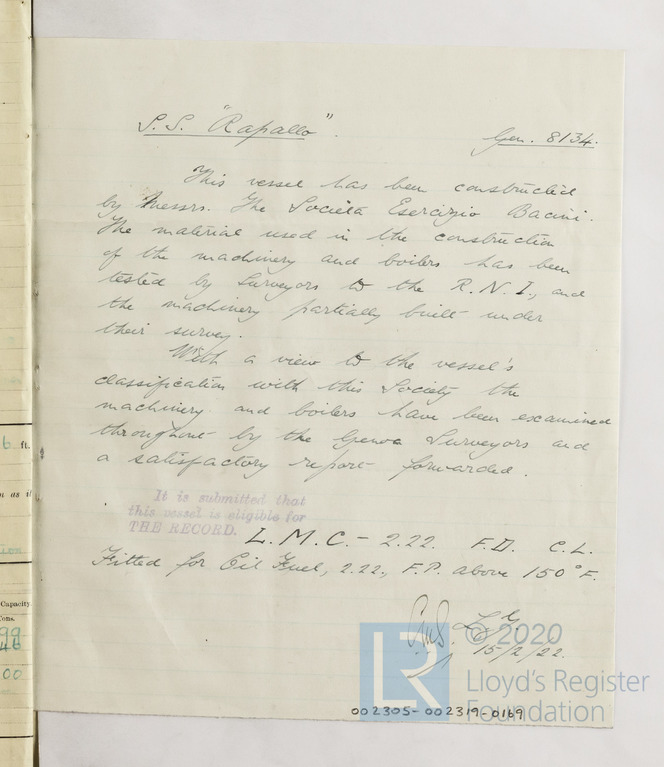 S.S. "Rapallo".
Gen. 8134.
This vessel has been constructed
by Messrs. The Società Esercizio Bacini.
The material used in the construction
of the machinery and boilers has been
tested by Surveyors to the R.N.I., and
the machinery partially built under
their survey.
With a view to the vessel's
classification with this Society the
machinery and boilers have been examined
throughout by the Genoa Surveyors and
a satisfactory report forwarded.
It is submitted that
this vessel is eligible for
THE RECORD.
L.M.C. - 2.22. F.D. C.L.
Fitted for Oil Fuel, 2.22, F.P. above 150°F.
15/2/22.
© 2020
LR
Lloyd's Register
Foundation
002305-002319-0169
6 ft.
n as i
Capacity.
Tons.
99
46
00